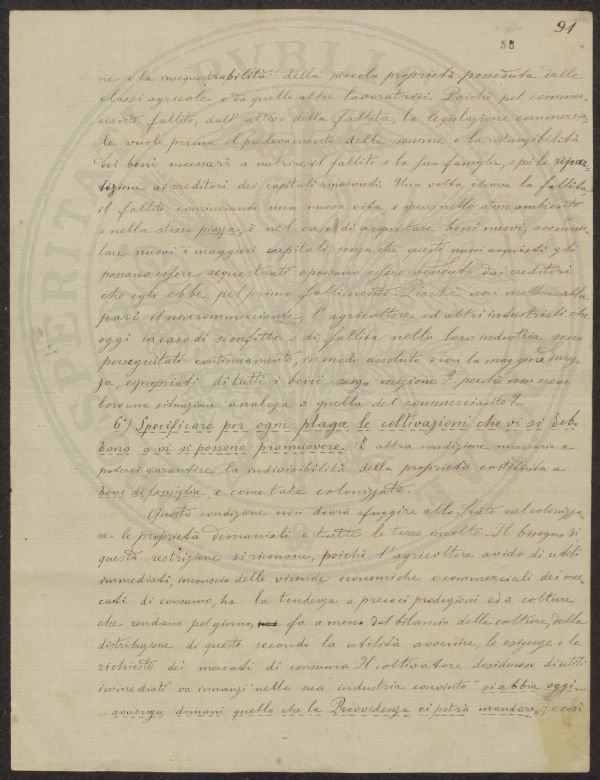 91
55
ne e la insequestrabilità della piccola proprietà posseduta dalle
classi agricole e da quelle altre lavoratrici. Poichè pel commer-
ciante fallito, dall'attivo della fallita, la legislazione commercia-
le vuole prima il prelevamento delle somme e la intangibilità
dei beni necessari a nutrire il fallito e la sua famiglia, e poi la ripar-
tizione ai creditori dei capitali rinvenuti. Una volta chiusa la fallita
il fallito, cominciando una nuova vita, e spesso nello stesso ambiente
e nella stessa piazza, è nel caso di acquistare beni nuovi, accumu-
lare nuovi e maggiori capitali senza che questi nuovi acquisti gli
possano essere sequestrati o possano essere venduti dai creditori
che egli ebbe pel primo fallimento. Perchè non mettere alla
pari il non commerciante, l'agricoltore ed altri industriali che
oggi in caso di sconfitta o di fallita nella loro industria sono
perseguitati continuamente, in modo assoluto e con la maggiore durez-
za, espropriati di tutti i beni senza eccezione? perchè non crear
loro una situazione analoga a quella del commerciante?
6°) Specificare per ogni plaga le coltivazioni che vi si deb-
bono o vi si possono promuovere. È altra condizione necessaria a
poterci garantire la indivisibilità della proprietà costituita a
bene di famiglia, e come tale colonizzata.
Questa condizione non dovrà sfuggire allo Stato nel colonizza-
re le proprietà demaniali e tutte le terre incolte. Il bisogno di
questa restrizione si riconosce, poichè l'agricoltore avido di utili
immediati, inconscio delle vicende economiche e commerciali dei mer-
cati di consumo, ha la tendenza a precoci produzioni ed a colture
che rendano pel giorno, fa a meno del bilancio delle colture, della
distribuzione di queste secondo la utilità avvenire, le esigenze e le
richieste dei mercati di consumo. Il coltivatore desideroso di utili
immediati va innanzi nella sua industria convinto si abbia oggi...
... avvenga domani quello che la Provvidenza ci potrà mandare; e così